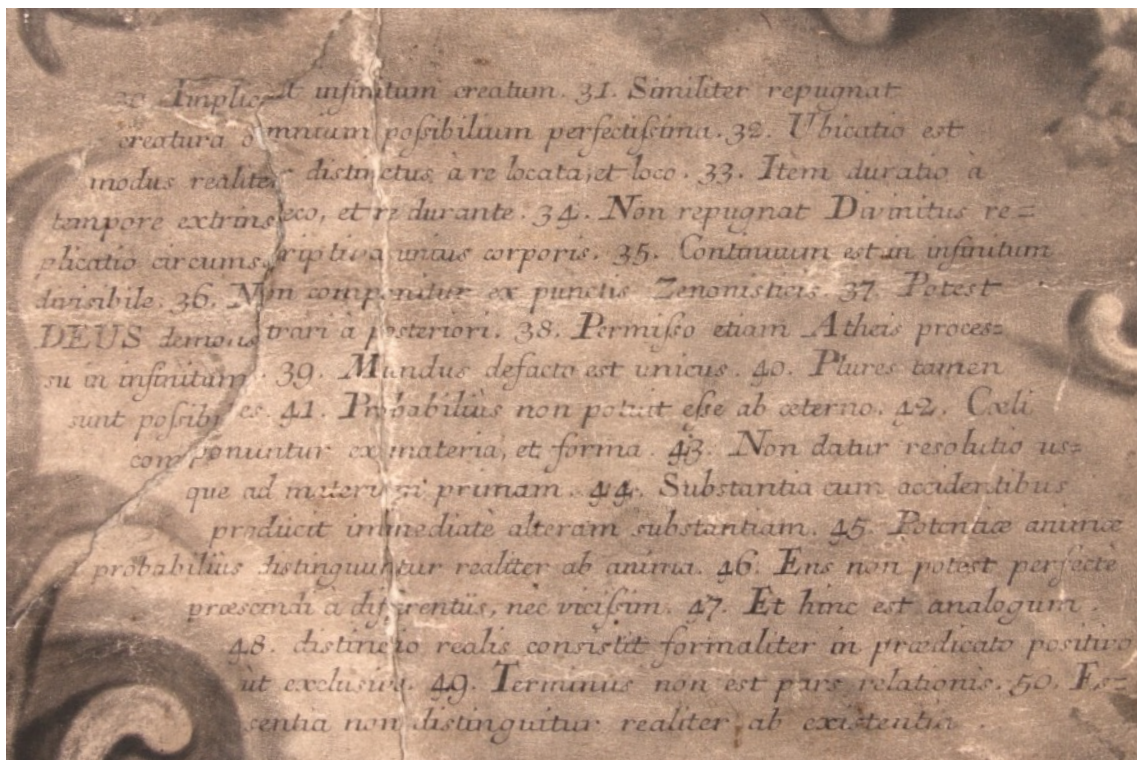 30 Implicat infinitum creatum. 31. Similiter repugnat
creatura omnium poſsibilium perfectiſsima. 32. Ubicatio est
modus realiter distinctus à re locata, et loco. 33. Item duratio à
tempore extrinseco, et re durante. 34. Non repugnat Divinitus re=
plicatio circumscriptiva unius corporis. 35. Continuum est in infinitum
divisibile. 36. Non componitur ex punctis Zenonisticis. 37. Potest
DEUS demonstrari à posteriori. 38. Permiſso etiam Atheis proces=
su in infinitum. 39. Mundus defacto est unicus. 40. Plures tamen
sunt poſsibiles. 41. Probabiliùs non potuit eſse ab æterno. 42. Cæli
componuntur ex materia, et forma. 43. Non datur resolutio us=
que ad materiam primam. 44. Substantia cum accidentibus
producit immediatè alteram substantiam. 45. Potentiæ animæ
probabiliùs distinguuntur realiter ab anima. 46. Ens non potest perfectè
præscindi à differentiis, nec viciſsim. 47. Et hinc est analogum.
48. distinctio realis consistit formaliter in prædicato positivo
ùt exclusivè. 49. Terminus non est pars relationis. 50. Es=
sentia non distinguitur realiter ab existentia.